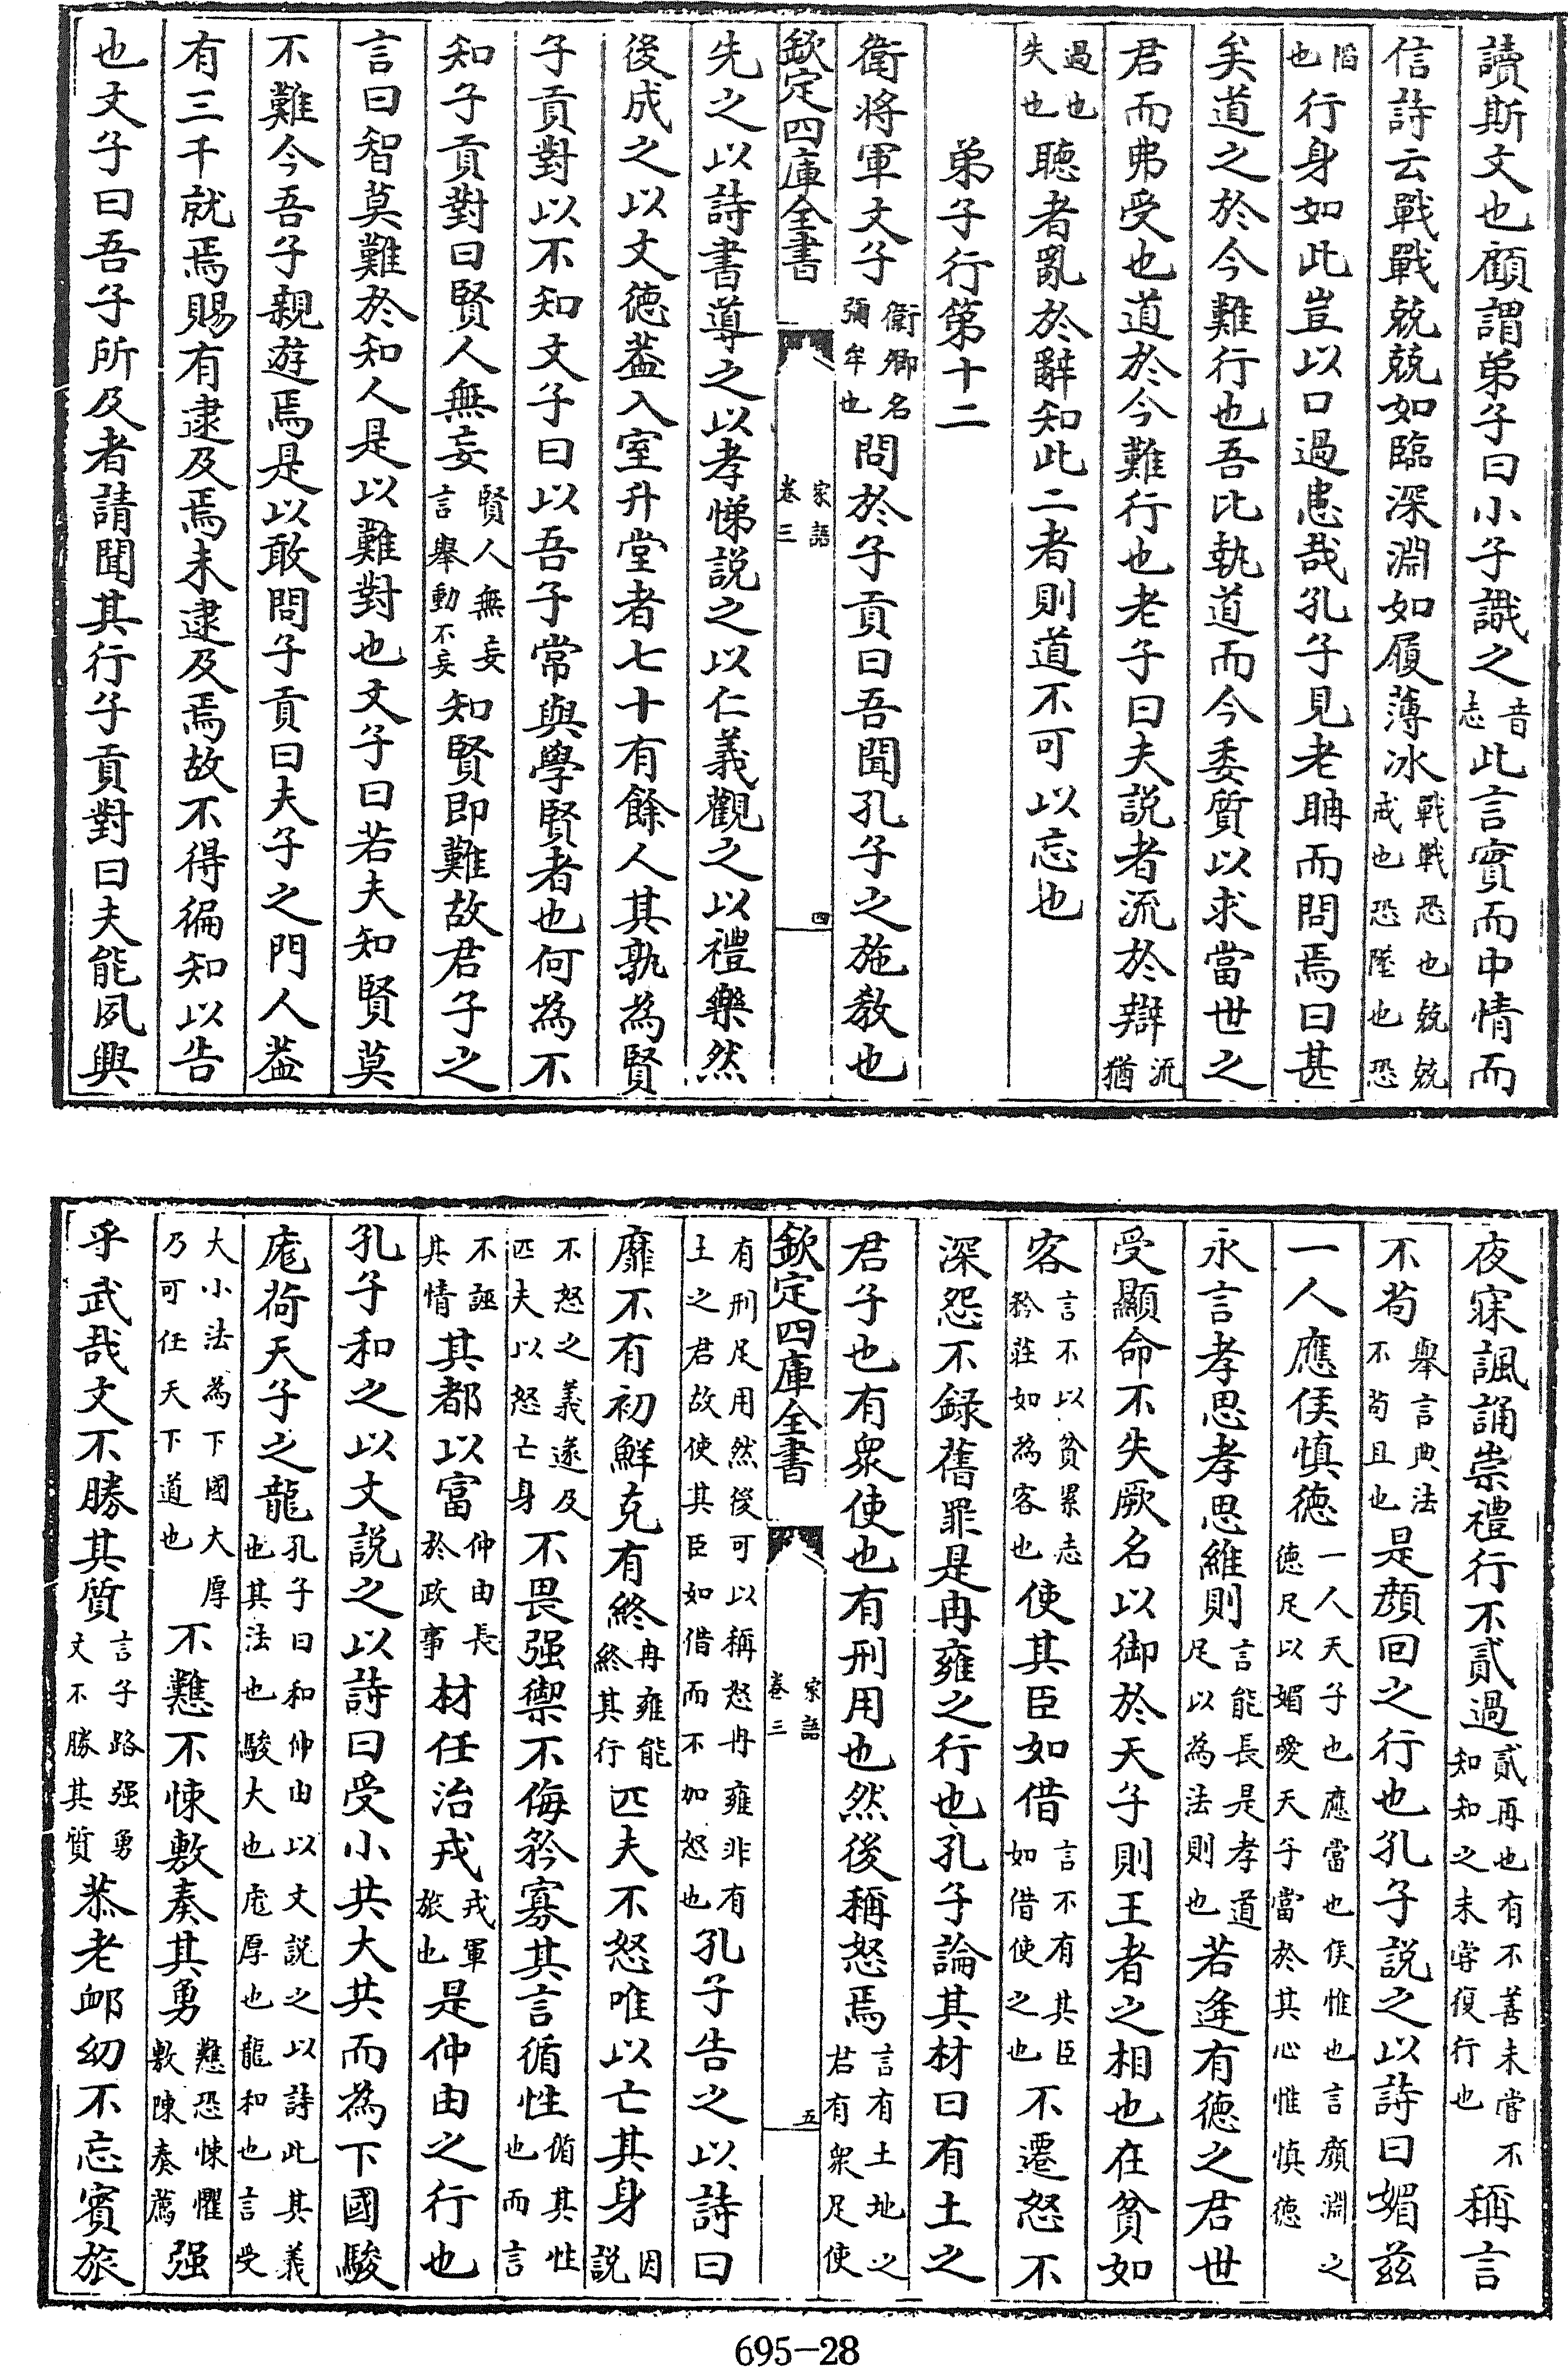 讀斯文也顧謂弟子曰小子識之音志此言實而中情而
信詩云戰戰兢兢如臨深淵如履薄冰戰戰恐也兢兢戒也恐墜也恐
陷也行身如此豈以口過患哉孔子見老聃而問焉曰甚
矣道之於今難行也吾比執道而今委質以求當世之
君而弗受也道於今難行也老子曰夫説者流於辯流猶
過也失也聽者亂於辭知此二者則道不可以忘也
弟子行第十二
衛將軍文子衛卿名彌牟也問於子貢曰吾聞孔子之施教也
欽定四庫全書 家語卷三 四
先之以詩書導之以孝悌説之以仁義觀之以禮樂然
後成之以文德葢入室升堂者七十有餘人其孰為賢
子貢對以不知文子曰以吾子常與學賢者也何為不
知子貢對曰賢人無妄賢人無妄言舉動不妄知賢即難故君子之
言曰智莫難於知人是以難對也文子曰若夫知賢莫
不難今吾子親遊焉是以敢問子貢曰夫子之門人葢
有三千就焉賜有逮及焉未逮及焉故不得徧知以告
也文子曰吾子所及者請聞其行子貢對曰夫能夙興
夜寐諷誦崇禮行不貳過貳再也有不善未嘗不知知之未嘗復行也稱言
不茍舉言典法不茍且也是顔回之行也孔子説之以詩曰媚兹
一人應侯慎德一人天子也應當也侯惟也言顔淵之德足以媚愛天子當於其心惟慎德
永言孝思孝思維則言能長是孝道足以為法則也若逢有德之君世
受顯命不失厥名以御於天子則王者之相也在貧如
客言不以貧累志矜莊如為客也使其臣如借言不有其臣如借使之也不遷怒不
深怨不録舊罪是冉雍之行也孔子論其材曰有土之
君子也有衆使也有刑用也然後稱怒焉言有土地之君有衆足使
欽定四庫全書 家語卷三 五
有刑足用然後可以稱怒冉雍非有土之君故使其臣如借而不加怒也孔子告之以詩曰
靡不有初鮮克有終冉雍能終其行匹夫不怒唯以亡其身因説
不怒之義遂及匹夫以怒亡身不畏强禦不侮矜寡其言循性循其性也而言
不誣其情其都以富仲由長於政事材任治戎戎軍旅也是仲由之行也
孔子和之以文説之以詩曰受小共大共而為下國駿
厖荷天子之龍孔子曰和仲由以文説之以詩此其義也其法也駿大也厖厚也龍和也言受
大小法為下國大厚乃可任天下道也不戁不悚敷奏其勇戁恐悚懼敷陳奏薦强
乎武哉文不勝其質言子路强勇文不勝其質恭老卹幼不忘賓旅
695-28